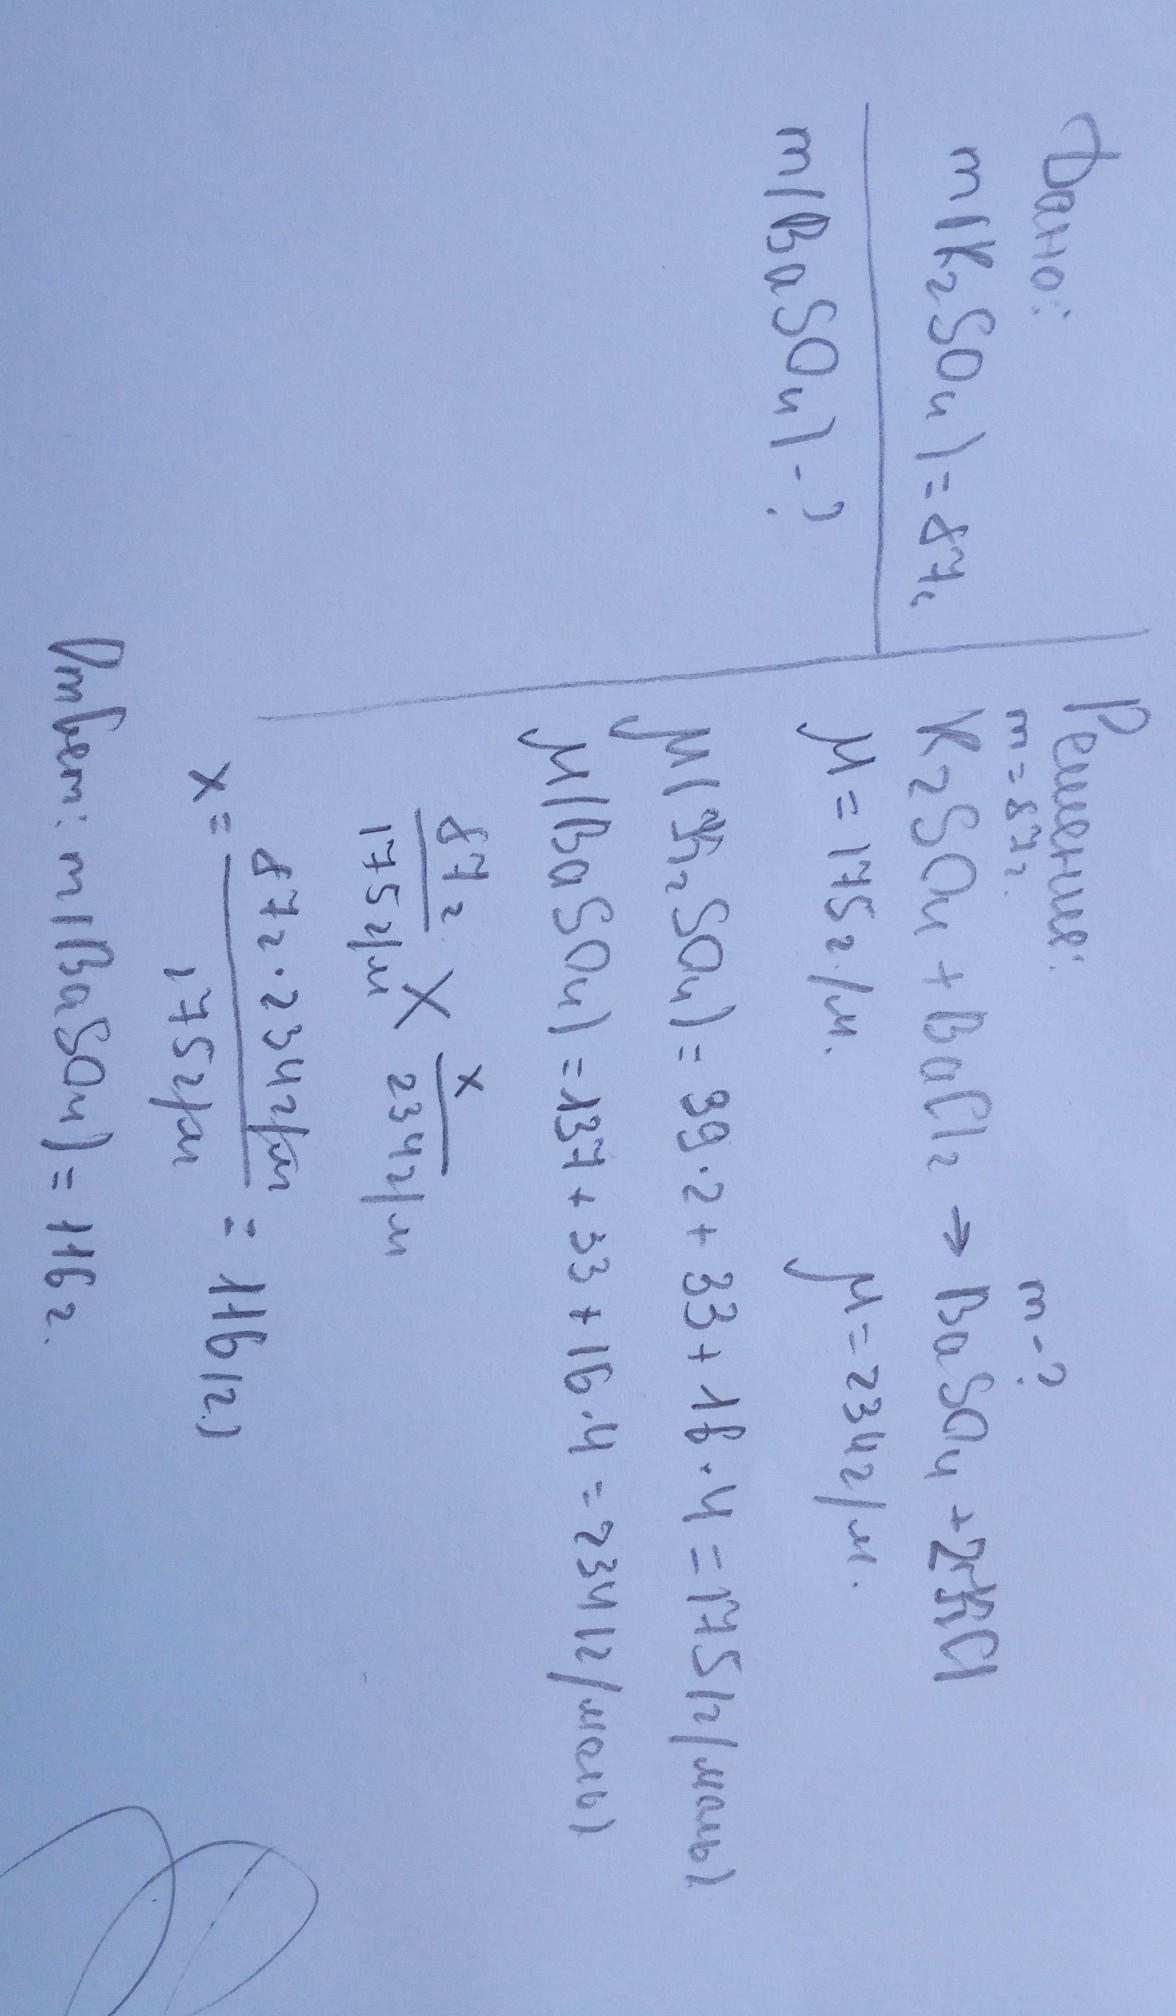 Дано:
m(K₂SO₄)=87г
m(BaSO₄)-?
Решение:
m=87г. m-?
K₂SO₄ + BaCl₂ → BaSO₄ + 2KCl
M=175г/м. M=234г/м.
M(K₂SO₄)=39·2+33+16·4=175(г/моль)
M(BaSO₄)=137+33+16·4=234(г/моль)
87г x
175г/м X 234г/м
x= 87г·234г/м = 116(г)
175г/м
Ответ: m(BaSO₄)=116г.